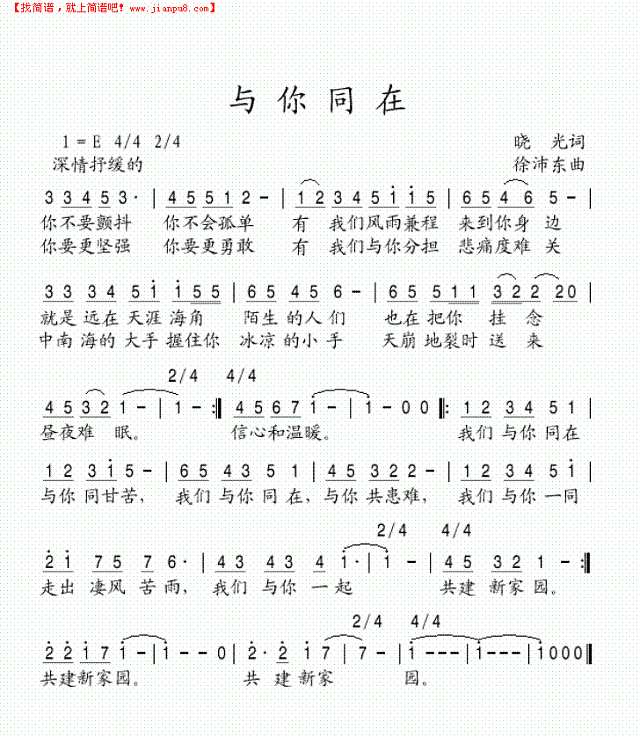 【找简谱，就上简谱吧！www.jianpu8.com】
与你同在
1=E 4/4 2/4
晓 光词
深情抒缓的
徐沛东曲
3 3 4 5 3· | 4 5 5 1 2 - | 1 2 3 4 5 i i 5 | 5 4 6 5 - |
你不要颤抖 你不会孤单 有 我们风雨兼程 来到你身 边
你要更坚强 你要更勇敢 有 我们与你分担 悲痛度难 关
3 3 3 4 5 i i 5 5 | 6 5 4 5 6 - | 6 5 5 1 1 3 2 2 2 0 |
就是 远在 天涯 海角 陌生 的人 们 也在 把你 挂 念
中南 海的 大手 握住你 冰凉 的小 手 天崩 地裂时 送 来
2/4 4/4
4 5 3 2 1 - | 1 - :‖ 4 5 6 7 i - | i - 0 0 ‖: 1 2 3 4 5 1 |
昼夜难 眠。 信心和温暖。 我们 与你 同在
1 2 3 i 5 - | 6 5 4 3 5 1 | 2 3 4 3 2 - | 1 2 3 4 5 i |
与你 同甘苦， 我们 与你 同 在，与你 共患难， 我们 与你 一同
2/4 4/4
2 i 7 5 7 6· | 4 3 4 3 4 i· | i - 4 5 3 2 1 - :‖
走出 凄风 苦雨，我们 与你 一 起 共建 新家 园。
2/4 4/4
2 2 i 7 i - | i - - 0 | 2· 2 i 7 | 7 - | i - - - | i - - - | i 0 0 0 ‖
共建新家园。 共 建 新家 园。